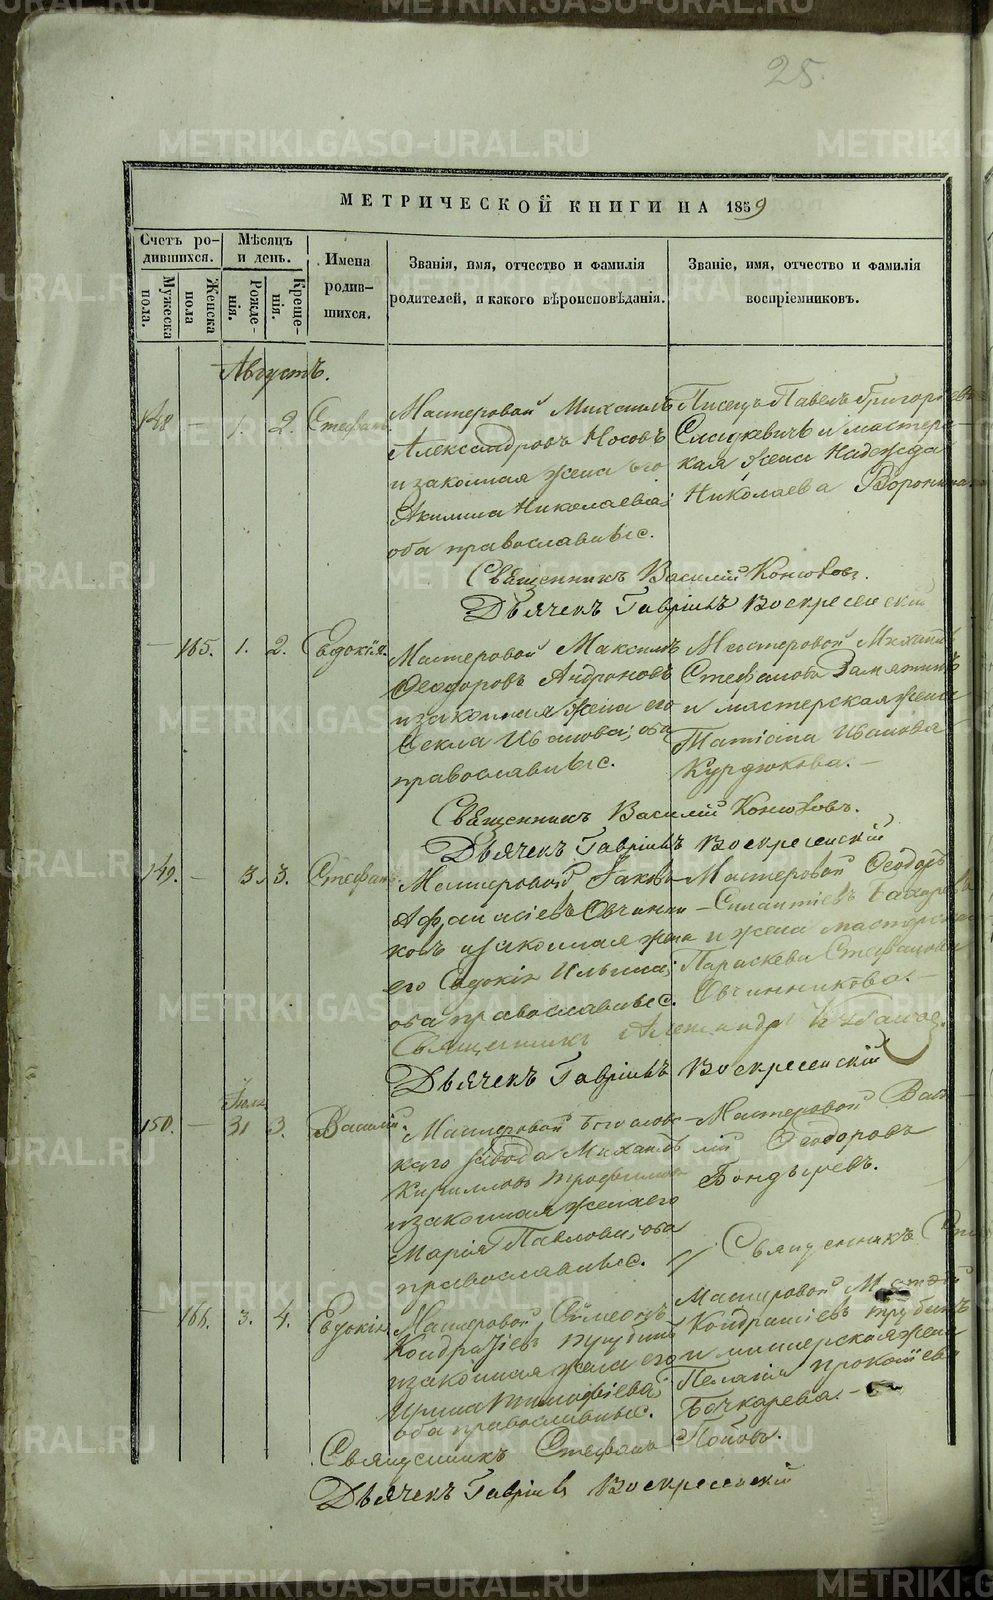 25.
МЕТРИЧЕСКОЙ КНИГИ НА 1859
Счетъ ро-
дившихся.
Мужеска
пола.
Женска
пола
Мѣсяцъ
и день.
Рожде-
нія.
Креще-
нія.
Имена
родив-
шихся.
Званія, имя, отчество и фамилія
родителей, и какого вѣроисповѣданія.
Званіе, имя, отчество и фамилія
воспріемниковъ.
Августъ.
148 — 1. 2. Стефанъ
Мастеровой Михаилъ
Александровъ Носовъ
и законная жена его
Акилина Николаева;
оба православные.
Писецъ Павелъ Григорьевъ
и мастерс-
кая жена Надежда
Николаева Воронина
Священникъ Василій Конюховъ.
Дьячекъ Гавріилъ Воскресенскій
— 165. 1. 2. Евдокія.
Мастеровой Максимъ
Ѳеодоровъ Андроновъ
и законная жена его
Ѳекла Иванова; оба
православные.
Мастеровой Михаилъ
Стефановъ Замятинъ
и мастерская жена
Татіана Иванова
Курдюкова. —
Священникъ Василій Конюховъ.
Дьячекъ Гавріилъ Воскресенскій
149. — 3. 3. Стефанъ
Мастеровой Іаковъ
Аѳанасіевъ Овчинни-
ковъ и законная жена
его Евдокія Ильина;
оба православные.
Мастеровой Ѳеодоръ
Силантіевъ
и жена мастерская
Параскева Стефанова
Овчинникова. —
Священникъ Александръ
Дьячекъ Гавріилъ Воскресенскій
Іюля
150. — 31 3. Василій.
Мастеровой Богослов-
скаго завода Михаилъ
Кирилловъ Трофимовъ
и законная жена его
Марія Павлова; оба
православные.
Мастеровой Васи-
лій Ѳеодоровъ
Бондыревъ.
// Священникъ
— 166. 3. 4. Евдокія
Мастеровой Сѵмеонъ
Кондратіевъ Трубинъ
и законная жена его
Ирина Тимоѳіева;
оба православные.
Мастеровой Матѳій
Кондратіевъ Трубинъ
и мастерская жена
Пелагія Прокопіева
Бочкарева. —
Священникъ Стефанъ Поповъ.
Дьячекъ Гавріилъ Воскресенскій
METRIKI.GASO-URAL.RU